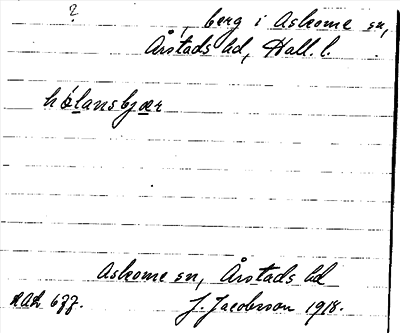 ?
berg i Askome sn,
Årstads hd, Hall. l.
hölansbjær
Askome sn, Årstads hd
J. Jacobsson 1918.